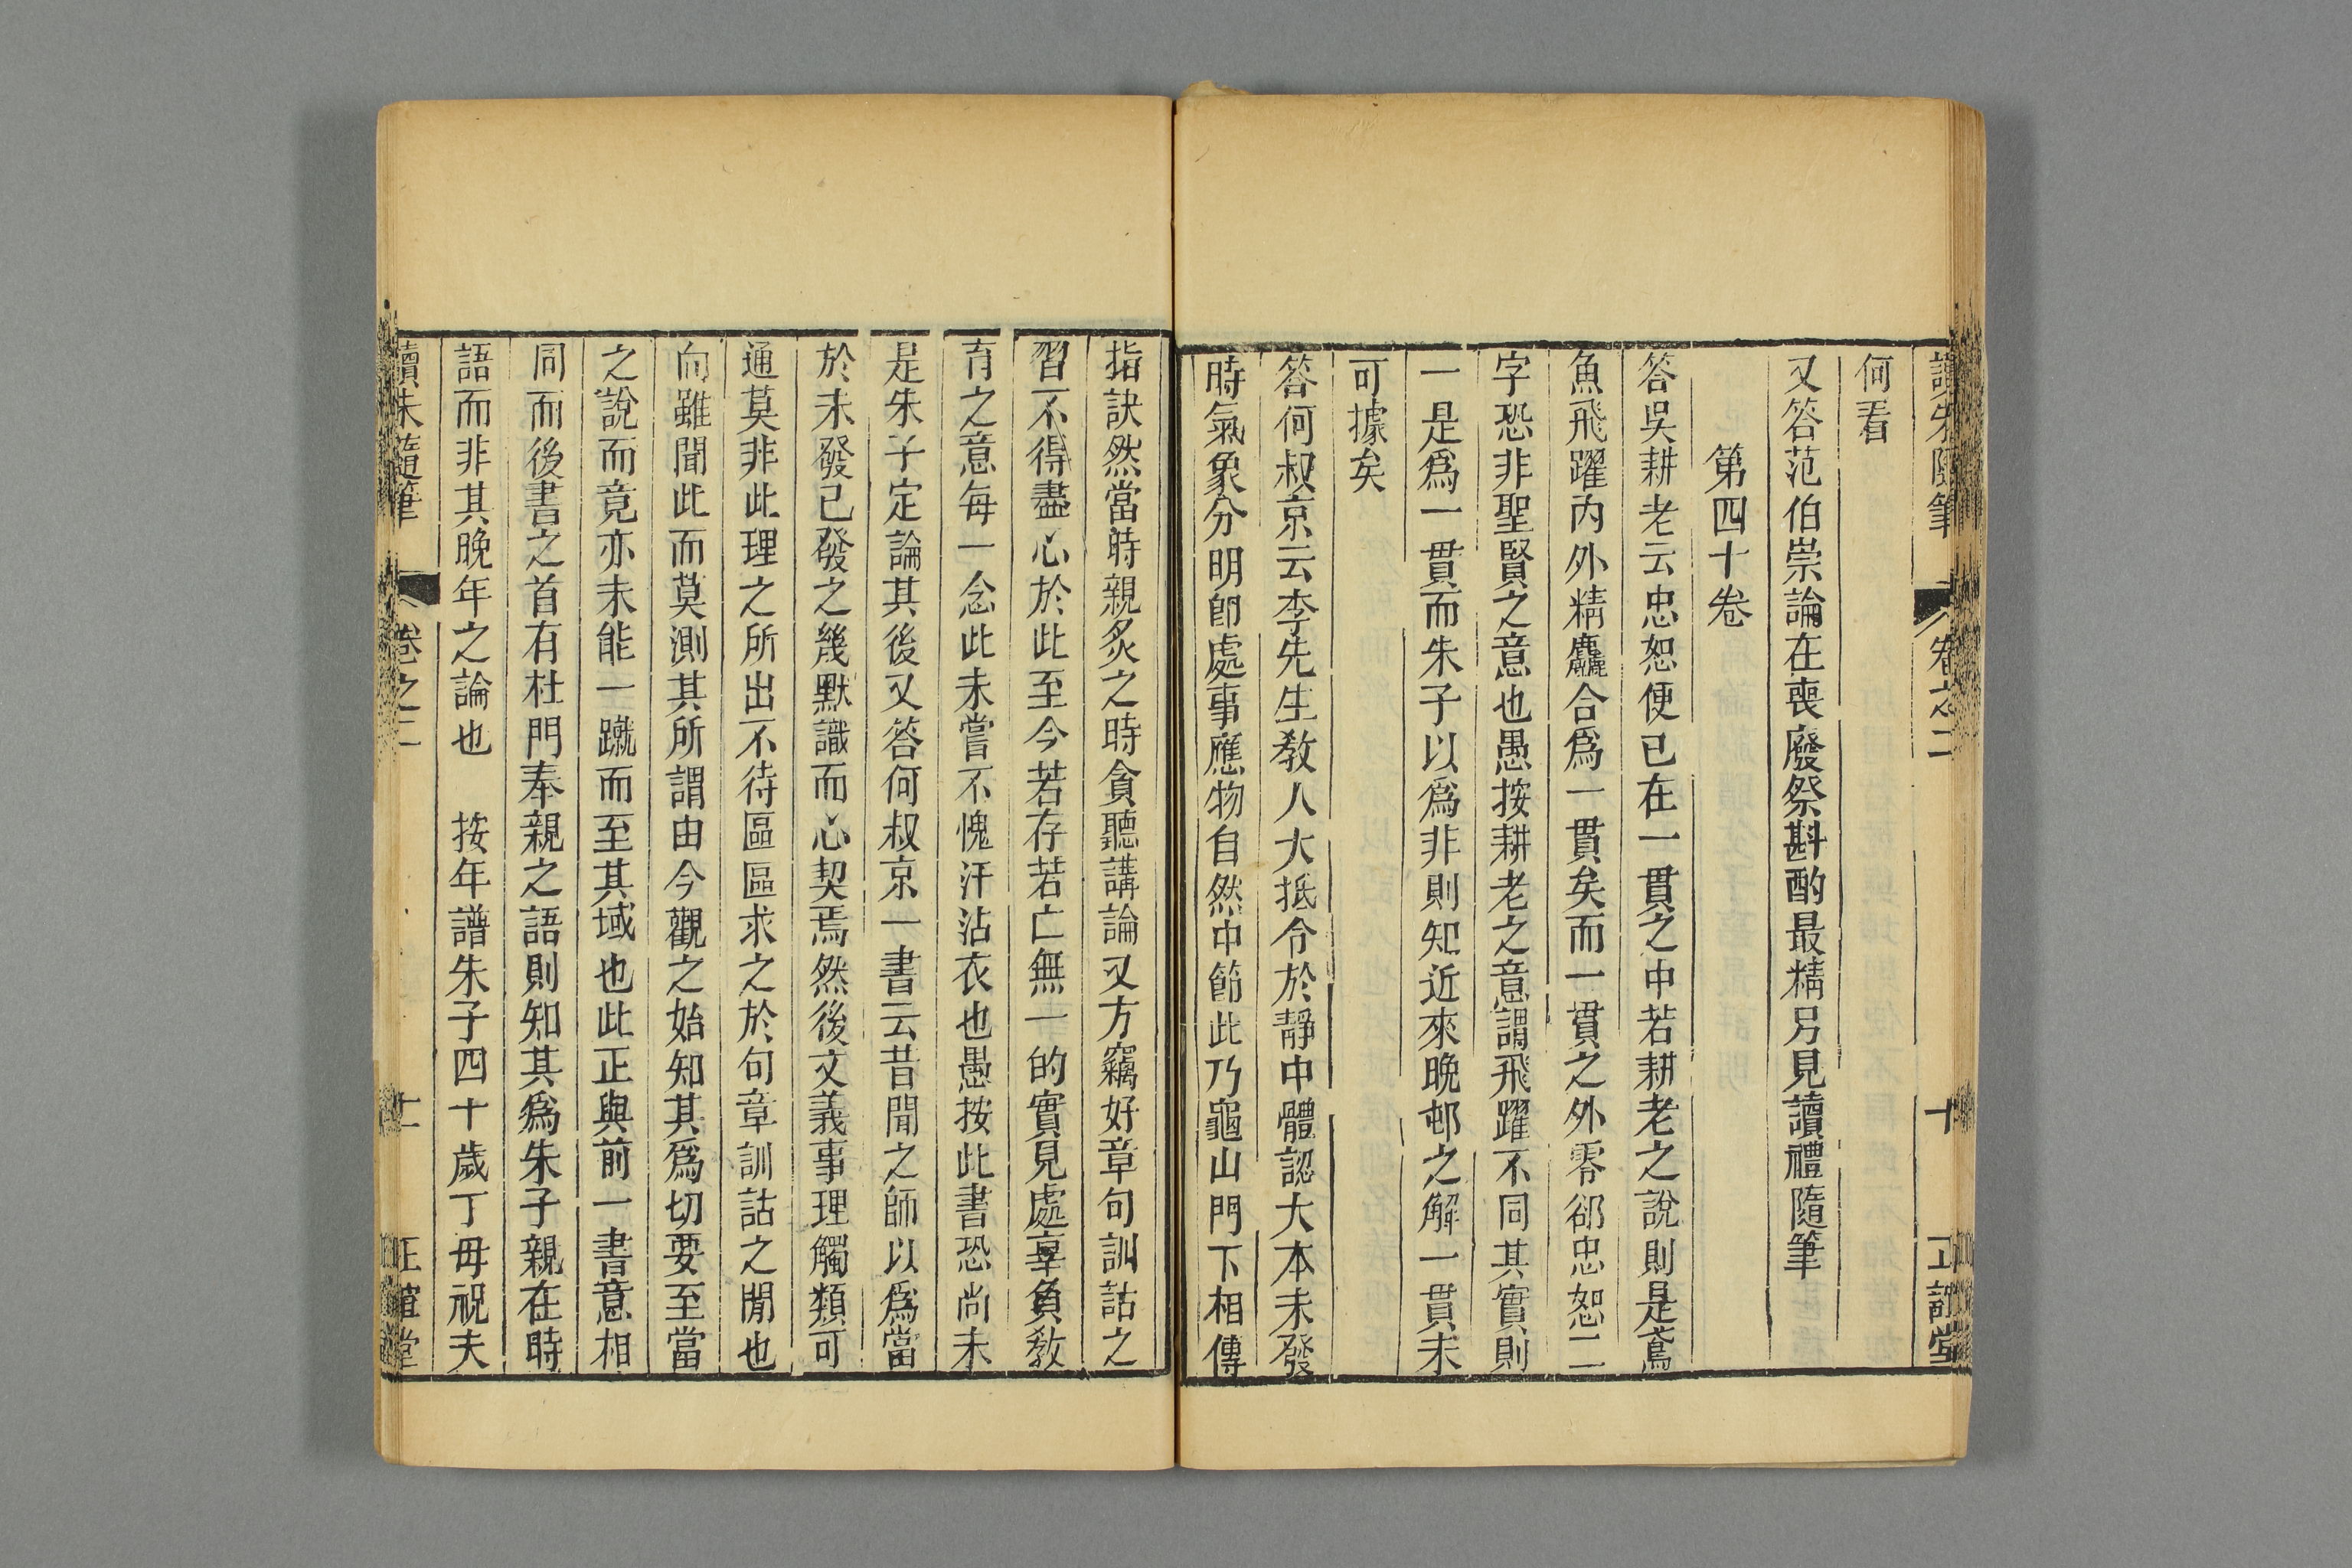 讀朱隨筆 卷之二 十 正誼堂
何看
又答范伯崇論在喪廢祭斟酌最精另見讀禮隨筆
第四十卷
答吳耕老云忠恕便已在一貫之中若耕老之說則是鳶
魚飛躍內外精麤合爲一貫矣而一貫之外零郤忠恕二
字恐非聖賢之意也愚按耕老之意謂飛躍不同其實則
一是爲一貫而朱子以爲非則知近來晚邨之解一貫未
可據矣
答何叔京云李先生敎人大抵令於靜中體認大本未發
時氣象分明卽處事應物自然中節此乃龜山門下相傳
指訣然當時親炙之時貪聽講論又方竊好章句訓詁之
習不得盡心於此至今若存若亡無一的實見處辜負敎
育之意每一念此未嘗不愧汗沾衣也愚按此書恐尚未
是朱子定論其後又答何叔京一書云昔聞之師以爲當
於未發已發之幾默識而心契焉然後文義事理觸類可
通莫非此理之所出不待區區求之於句章訓詁之閒也
向雖聞此而莫測其所謂由今觀之始知其爲切要至當
之說而竟亦未能一蹴而至其域也此正與前一書意相
同而後書之首有杜門奉親之語則知其爲朱子親在時
語而非其晚年之論也　按年譜朱子四十歲丁母祝夫
讀朱隨筆 卷之二 十一 正誼堂